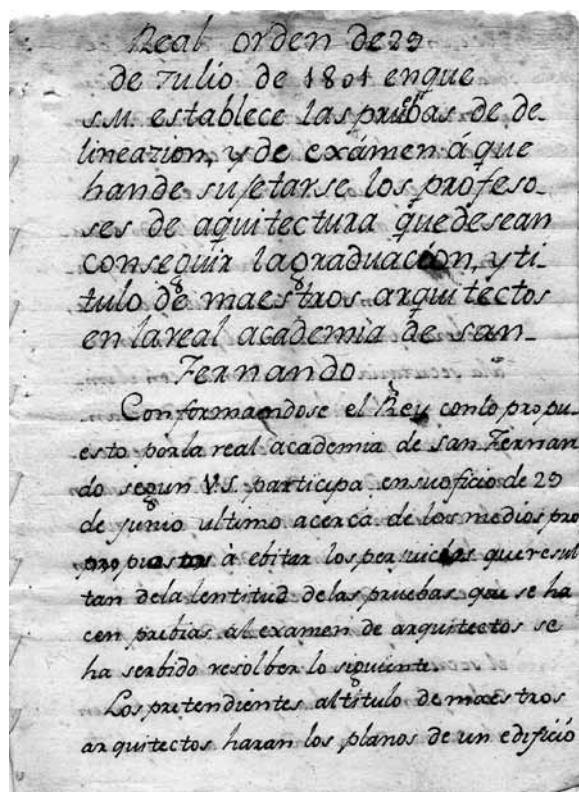 Real orden de 29
de Julio de 1801 enque
S.M. establece las pruebas de de-
lineazion, y de exámen á que
hande sujetarse los profeso-
res de aquitectura que desean
conseguir la graduacion, y ti-
tulo de maestros arquitectos
en la real academia de san-
Fernando
Conformandose el Rey conlo propu-
esto por la real academia de san Fernan
do segun V.S. participa ensu oficio de 29
de junio ultimo acerca de los medios pro
propuestos à ebitar los perjuicios que resul
tan dela lentitud delas pruebas que se ha
cen prebias al examen de arquitectos se
ha serbido resolber lo siguiente.
Los pretendientes al titulo de maestros
arquitectos haran los planos de un edificio